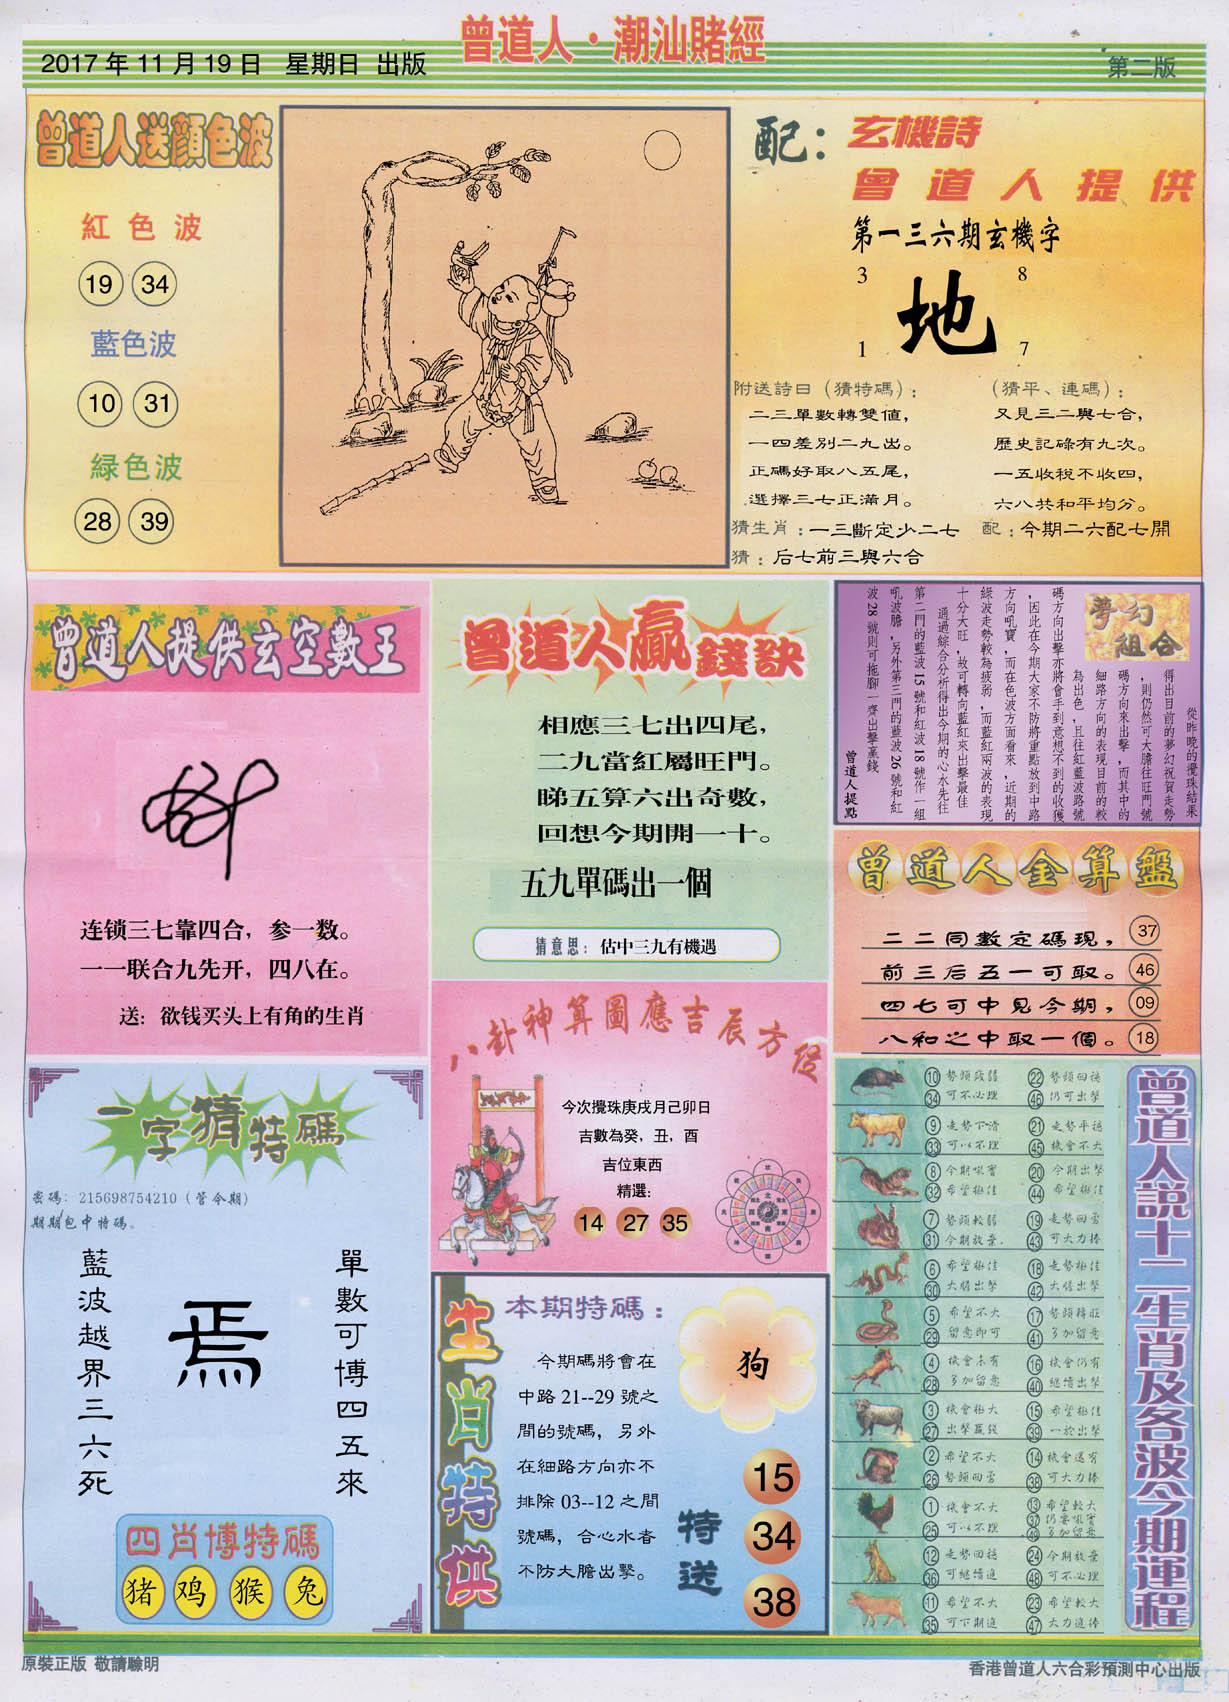 曾道人·潮汕賭經
2017年11月19日 星期日 出版
第二版
曾道人送顏色波
紅色波
19 34
藍色波
10 31
緑色波
28 39
配：玄機詩
曾道人提供
第一三六期玄機字
3 8
地
1 7
附送詩曰（猜特碼）：
二三單數轉雙值，
一四差別二九出。
正碼好取八五尾，
選擇三七正滿月。
（猜平、連碼）：
又見三二與七合，
歷史記碌有九次。
一五收稅不收四，
六八共和平均分。
猜生肖：一三斷定少二七
配：今期二六配七開
猜：后七前三與六合
曾道人提供玄空數王
连锁三七靠四合，参一数。
一一联合九先开，四八在。
送：欲钱买头上有角的生肖
曾道人贏錢訣
相應三七出四尾，
二九當紅屬旺門。
睇五算六出奇數，
回想今期開一十。
五九單碼出一個
猜意思：估中三九有機遇
夢幻
組合
從昨晚的攪珠結果
得出目前的夢幻祝賀走勢
，則仍然可大膽往旺門號
碼方向來出擊，而其中的
細路方向的表現目前的較
為出色，且往紅藍波路號
碼方向出擊亦將會手到意想不到的收獲
，因此在今期大家不防將重點放到中路
方向吼寶，而在色波方面看來，近期的
綠波走勢較為疲弱，而藍紅兩波的表現
十分大旺，故可轉向藍紅來出擊最佳
通過綜合分析得出今期的心水先往
第二門的藍波15號和紅波18號作一組
吼波膽，另外第三門的藍波26號和紅
波28號則可拖腳一齊出擊贏錢
曾道人提點
曾道人金算盤
二二同數定碼現， 37
前三后五一可取。 46
四七可中見今期， 09
八和之中取一個。 18
八卦神算圖應吉辰方位
今次攪珠庚戌月己卯日
吉數為癸，丑，酉
吉位東西
精選:
14 27 35
一字猜特碼
密碼：215698754210（管今期）
期期包中特碼。
單數可博四五來
焉
藍波越界三六死
四肖博特碼
猪 鸡 猴 兔
生肖特供
本期特碼：
今期碼將會在
中路21--29號之
間的號碼，另外
在細路方向亦不
排除03--12之間
號碼，合心水者
不防大膽出擊。
狗
特送
15
34
38
曾道人說十二生肖及各波今期運程
10 勢頭疲弱 22 勢頭回穩
34 可不必理 46 仍可出擊
9 走勢下滑 21 走勢平穩
33 可以不理 45 機會不大
8 今期吼寶 20 今期出擊
32 希望極佳 44 希望極佳
7 勢頭較弱 19 走勢回勇
31 今期放棄 43 可大力捧
6 希望極佳 18 走勢極佳
30 大膽出擊 42 大膽出擊
5 希望不大 17 勢頭轉旺
29 留意即可 41 多加留意
4 機會未有 16 機會仍有
28 多加留意 40 繼續出擊
3 機會極大 15 希望極佳
27 出擊贏錢 39 一於出擊
2 希望不大 14 機會還有
26 勢頭回勇 38 可大力捧
1 機會不大 13 希望較大
25 可以不理 37 仍要吼寶
49 多加留意
12 走勢回穩 24 今期放棄
36 可繼續追 48 可不必理
11 希望不大 23 希望較大
35 可下期追 47 大力追捧
原裝正版 敬請驗明
香港曾道人六合彩預測中心出版